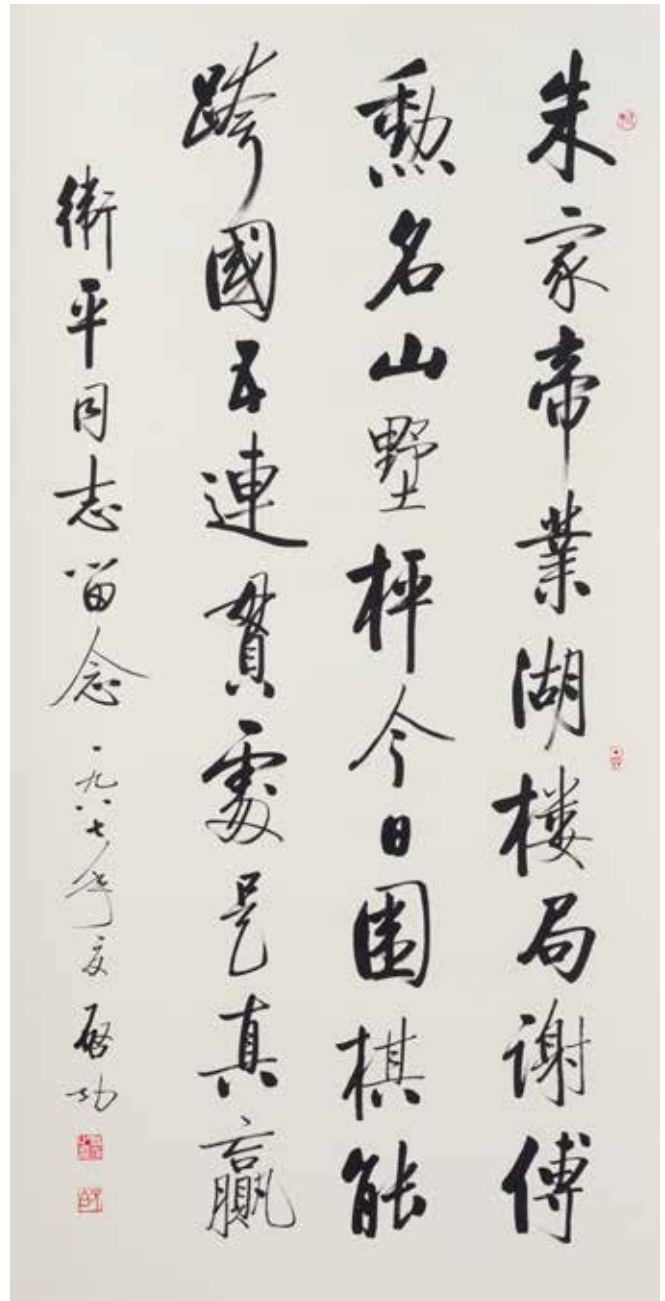 朱家帝業湖楼局谢傅
勲名山墅枰今日围棋能
跨國互連貫處是真赢
衛平同志留念 一九八七年夏 启功